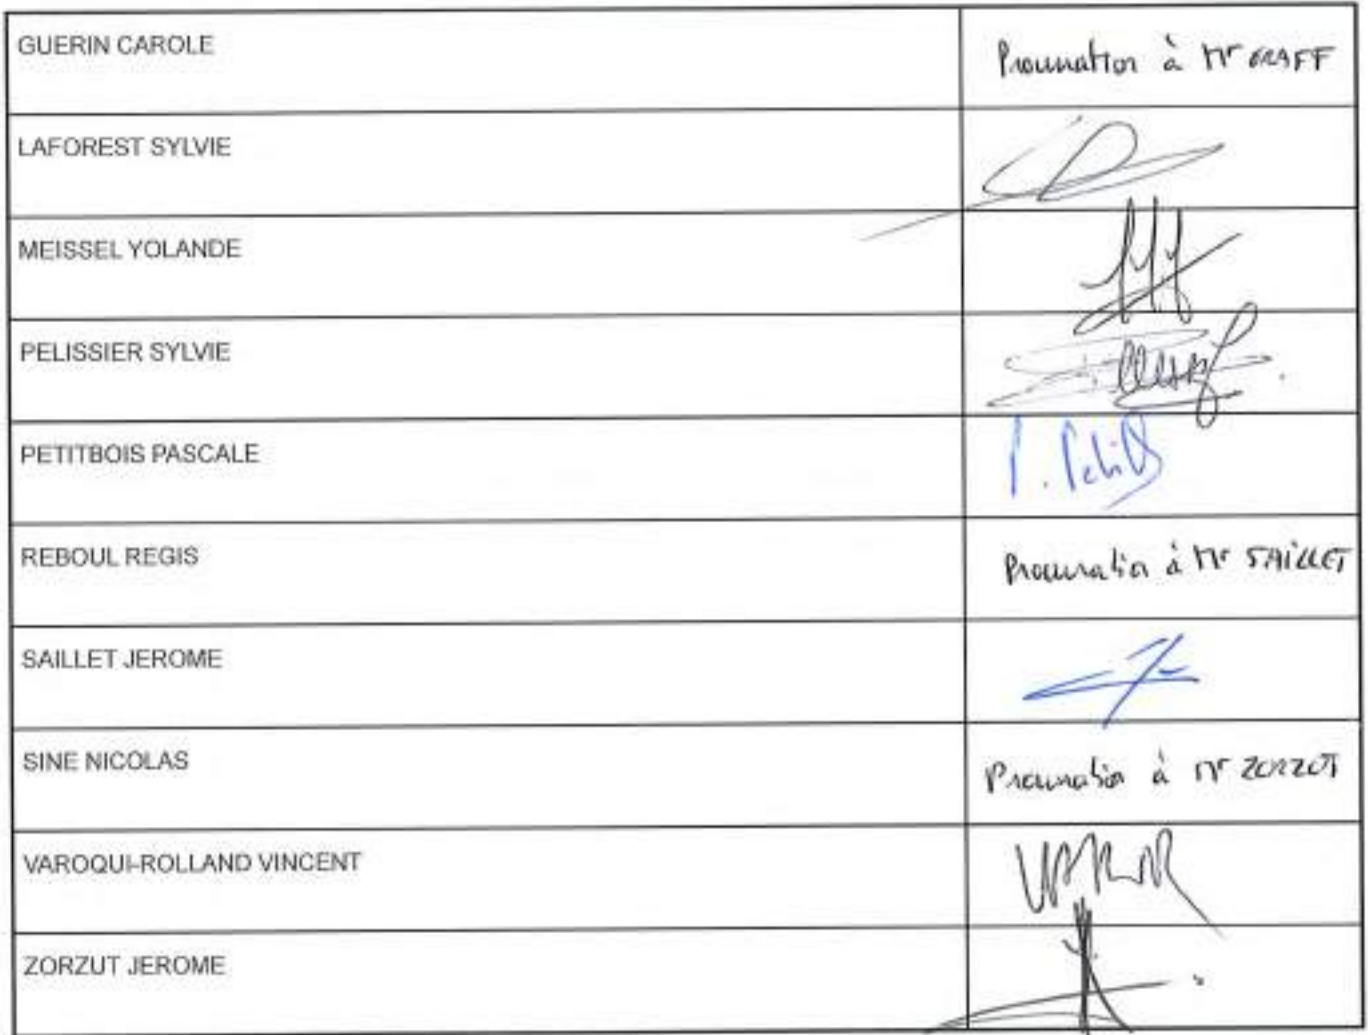 GUERIN CAROLE Procuration à Mr GRAFF
LAFOREST SYLVIE
MEISSEL YOLANDE
PELISSIER SYLVIE
PETITBOIS PASCALE P. Petitb
REBOUL REGIS Procuration à Mr SAILLET
SAILLET JEROME
SINE NICOLAS Procuration à Mr ZORZUT
VAROQUI-ROLLAND VINCENT
ZORZUT JEROME